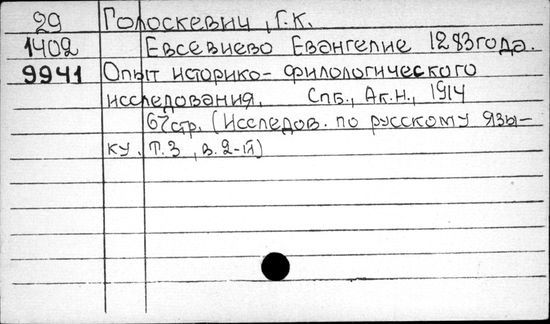 29 Голоскевич, Г.К.
1402 Евсевиево Евангелие 1283года.
9941 Опыт историко-филологического
исследования. Спб., Ак.н., 1914
67стр. (Исследов. по русскому язы-
ку. Т.3, в.2-й)